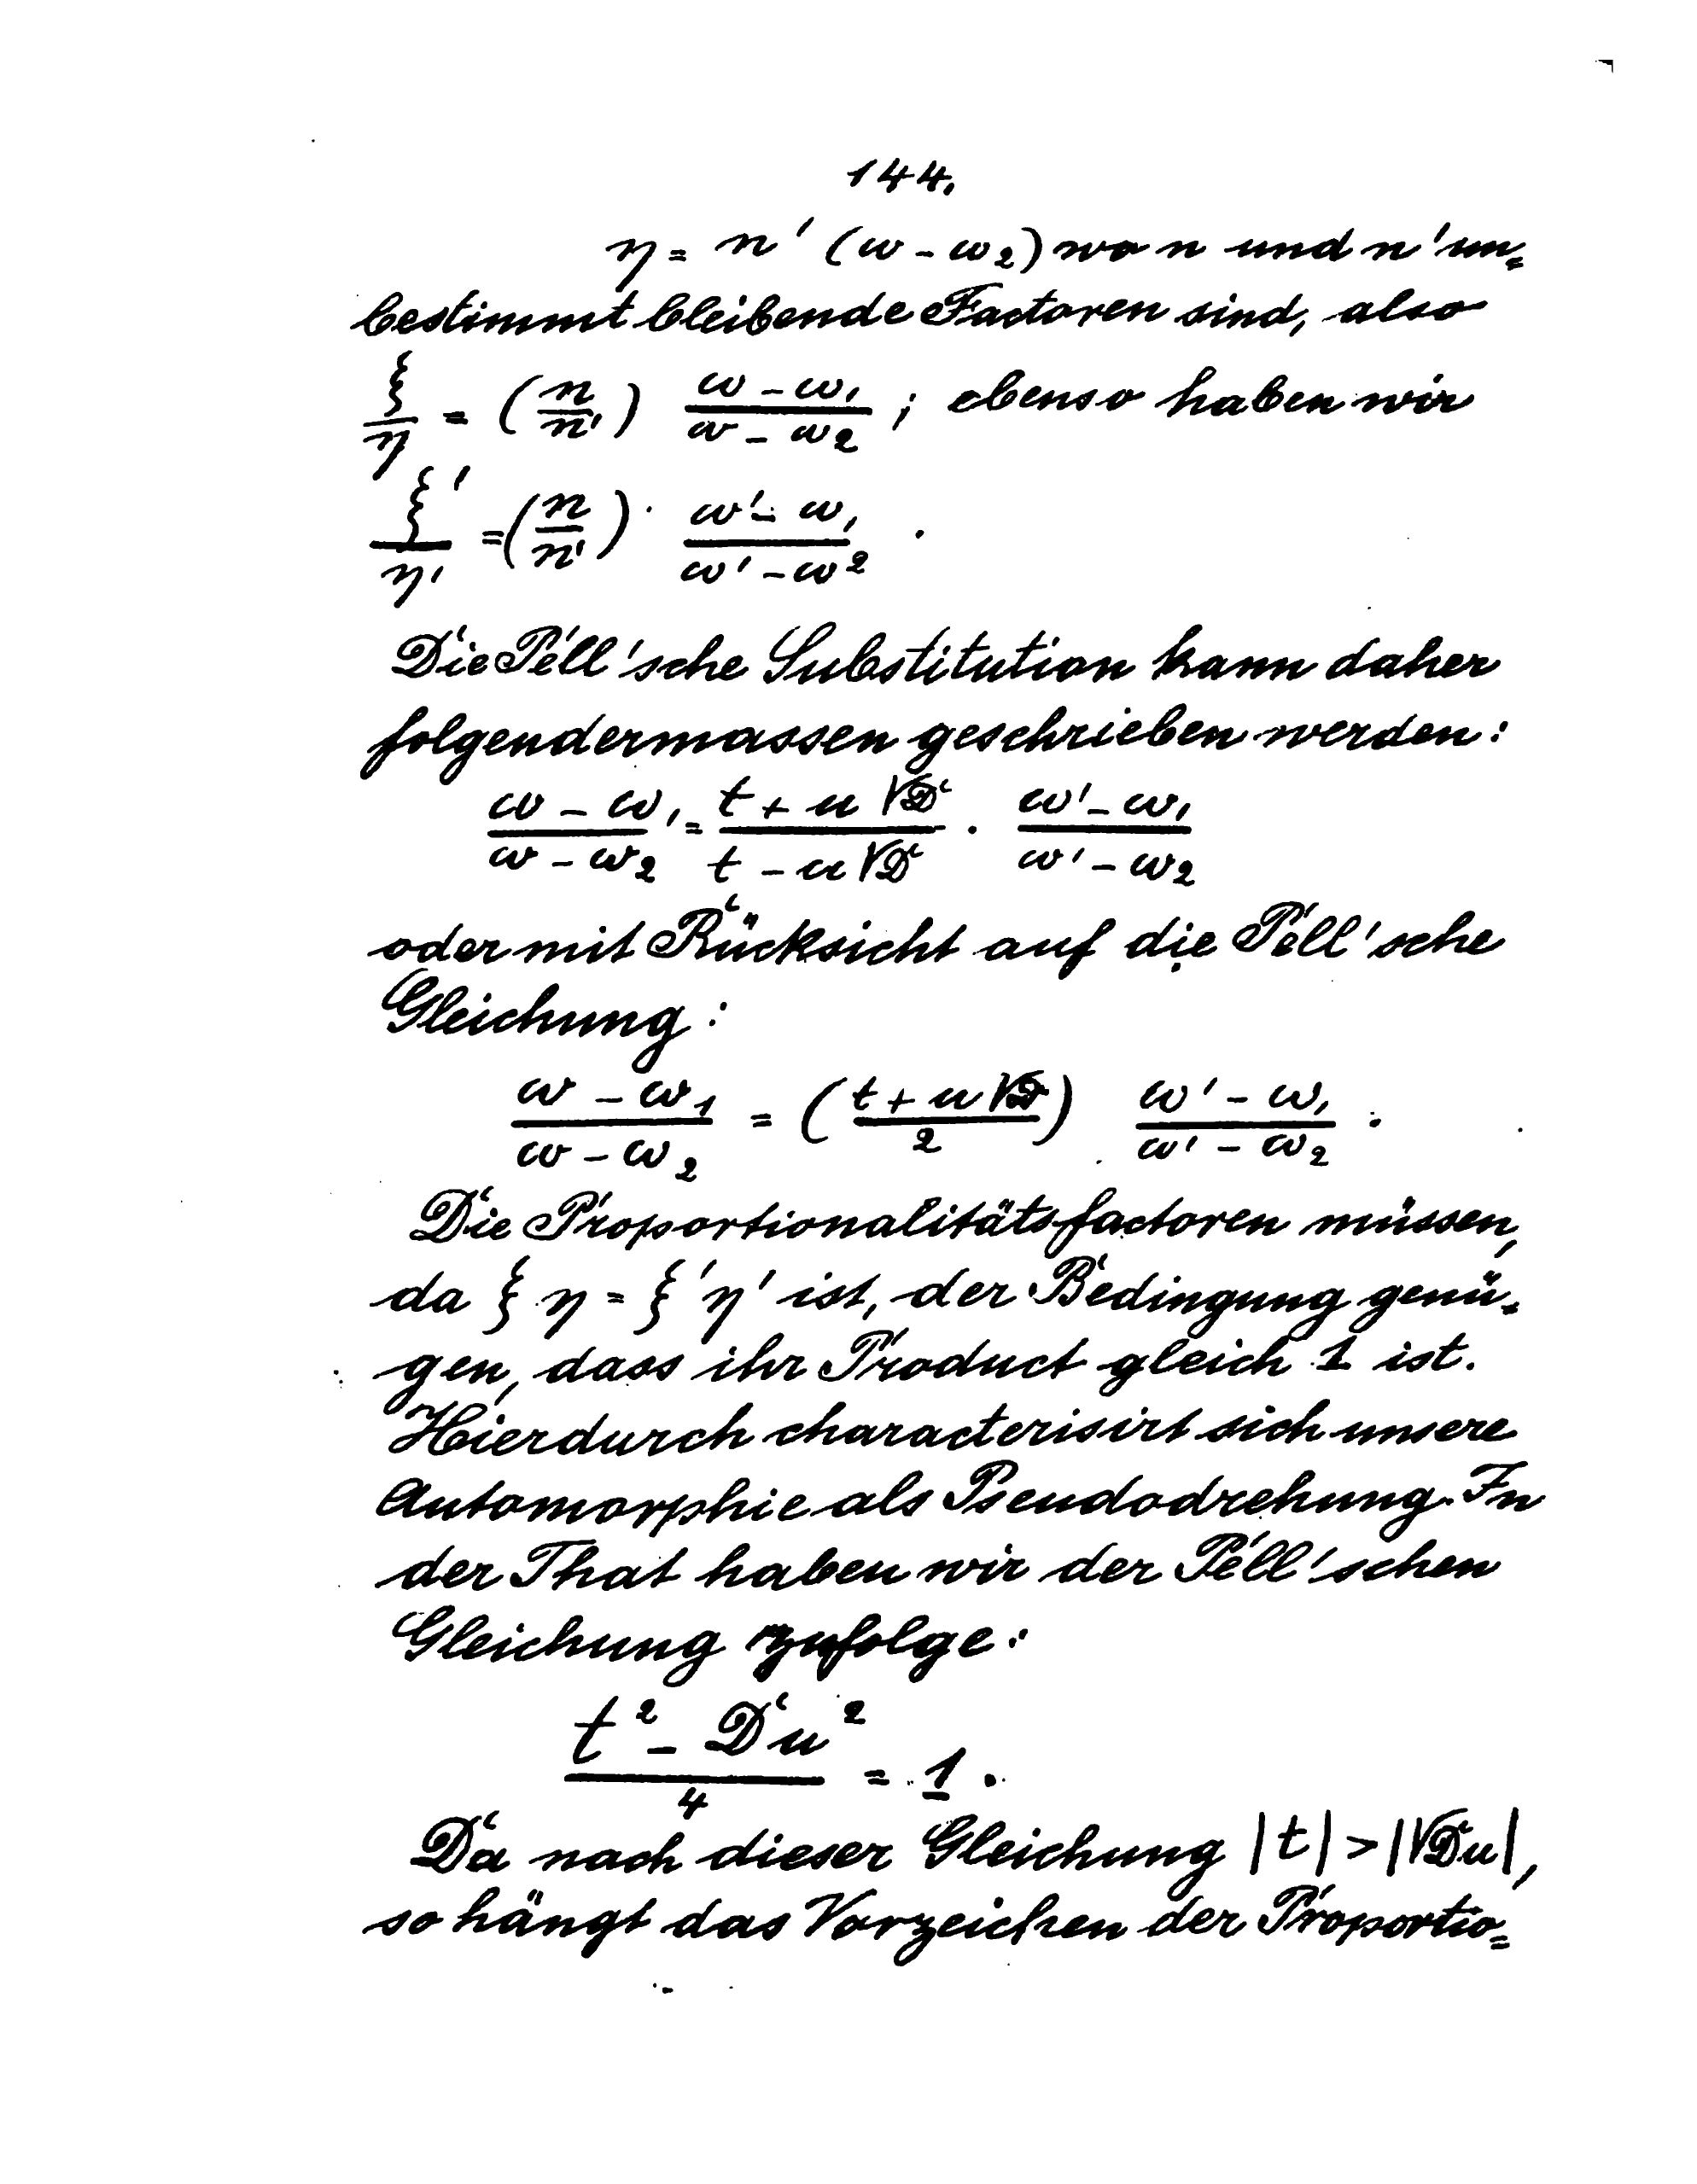 144.
η = n' (ω - ω₂) wo n und n' un=
bestimmt bleibende Factoren sind, also
ξ/η = (n/n') (ω - ω₁)/(ω - ω₂) ; ebenso haben wir
ξ'/η' = (n/n') · (ω' - ω₁)/(ω' - ω²) .
Die Pell'sche Substitution kann daher
folgendermassen geschrieben werden:
(ω - ω₁)/(ω - ω₂) = (t + u √D)/(t - u √D) · (ω' - ω₁)/(ω' - ω₂)
oder mit Rücksicht auf die Pell'sche
Gleichung:
(ω - ω₁)/(ω - ω₂) = ((t + u √D)/2) (ω' - ω₁)/(ω' - ω₂) .
Die Proportionalitätsfactoren müssen,
da ξ η = ξ' η' ist, der Bedingung genü=
gen, dass ihr Product gleich 1 ist.
Hierdurch characterisirt sich unsere
Automorphie als Pseudodrehung. In
der That haben wir der Pell'schen
Gleichung zufolge:
(t² - Du²)/4 = 1 .
Da nach dieser Gleichung |t| > |√D u|,
so hängt das Vorzeichen der Proportio=